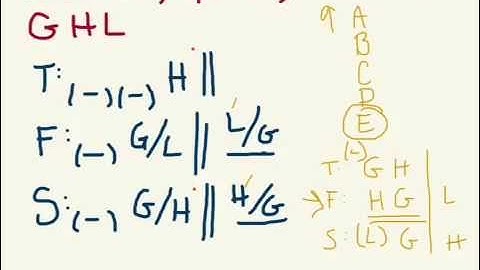 G H L
T: (-)(-) H ||
F: (-) G/L || L/G
S: (-) G/H || H/G
9 A
B
C
D
E
T: (-) G H
F: H G | L
S: (L) G | H